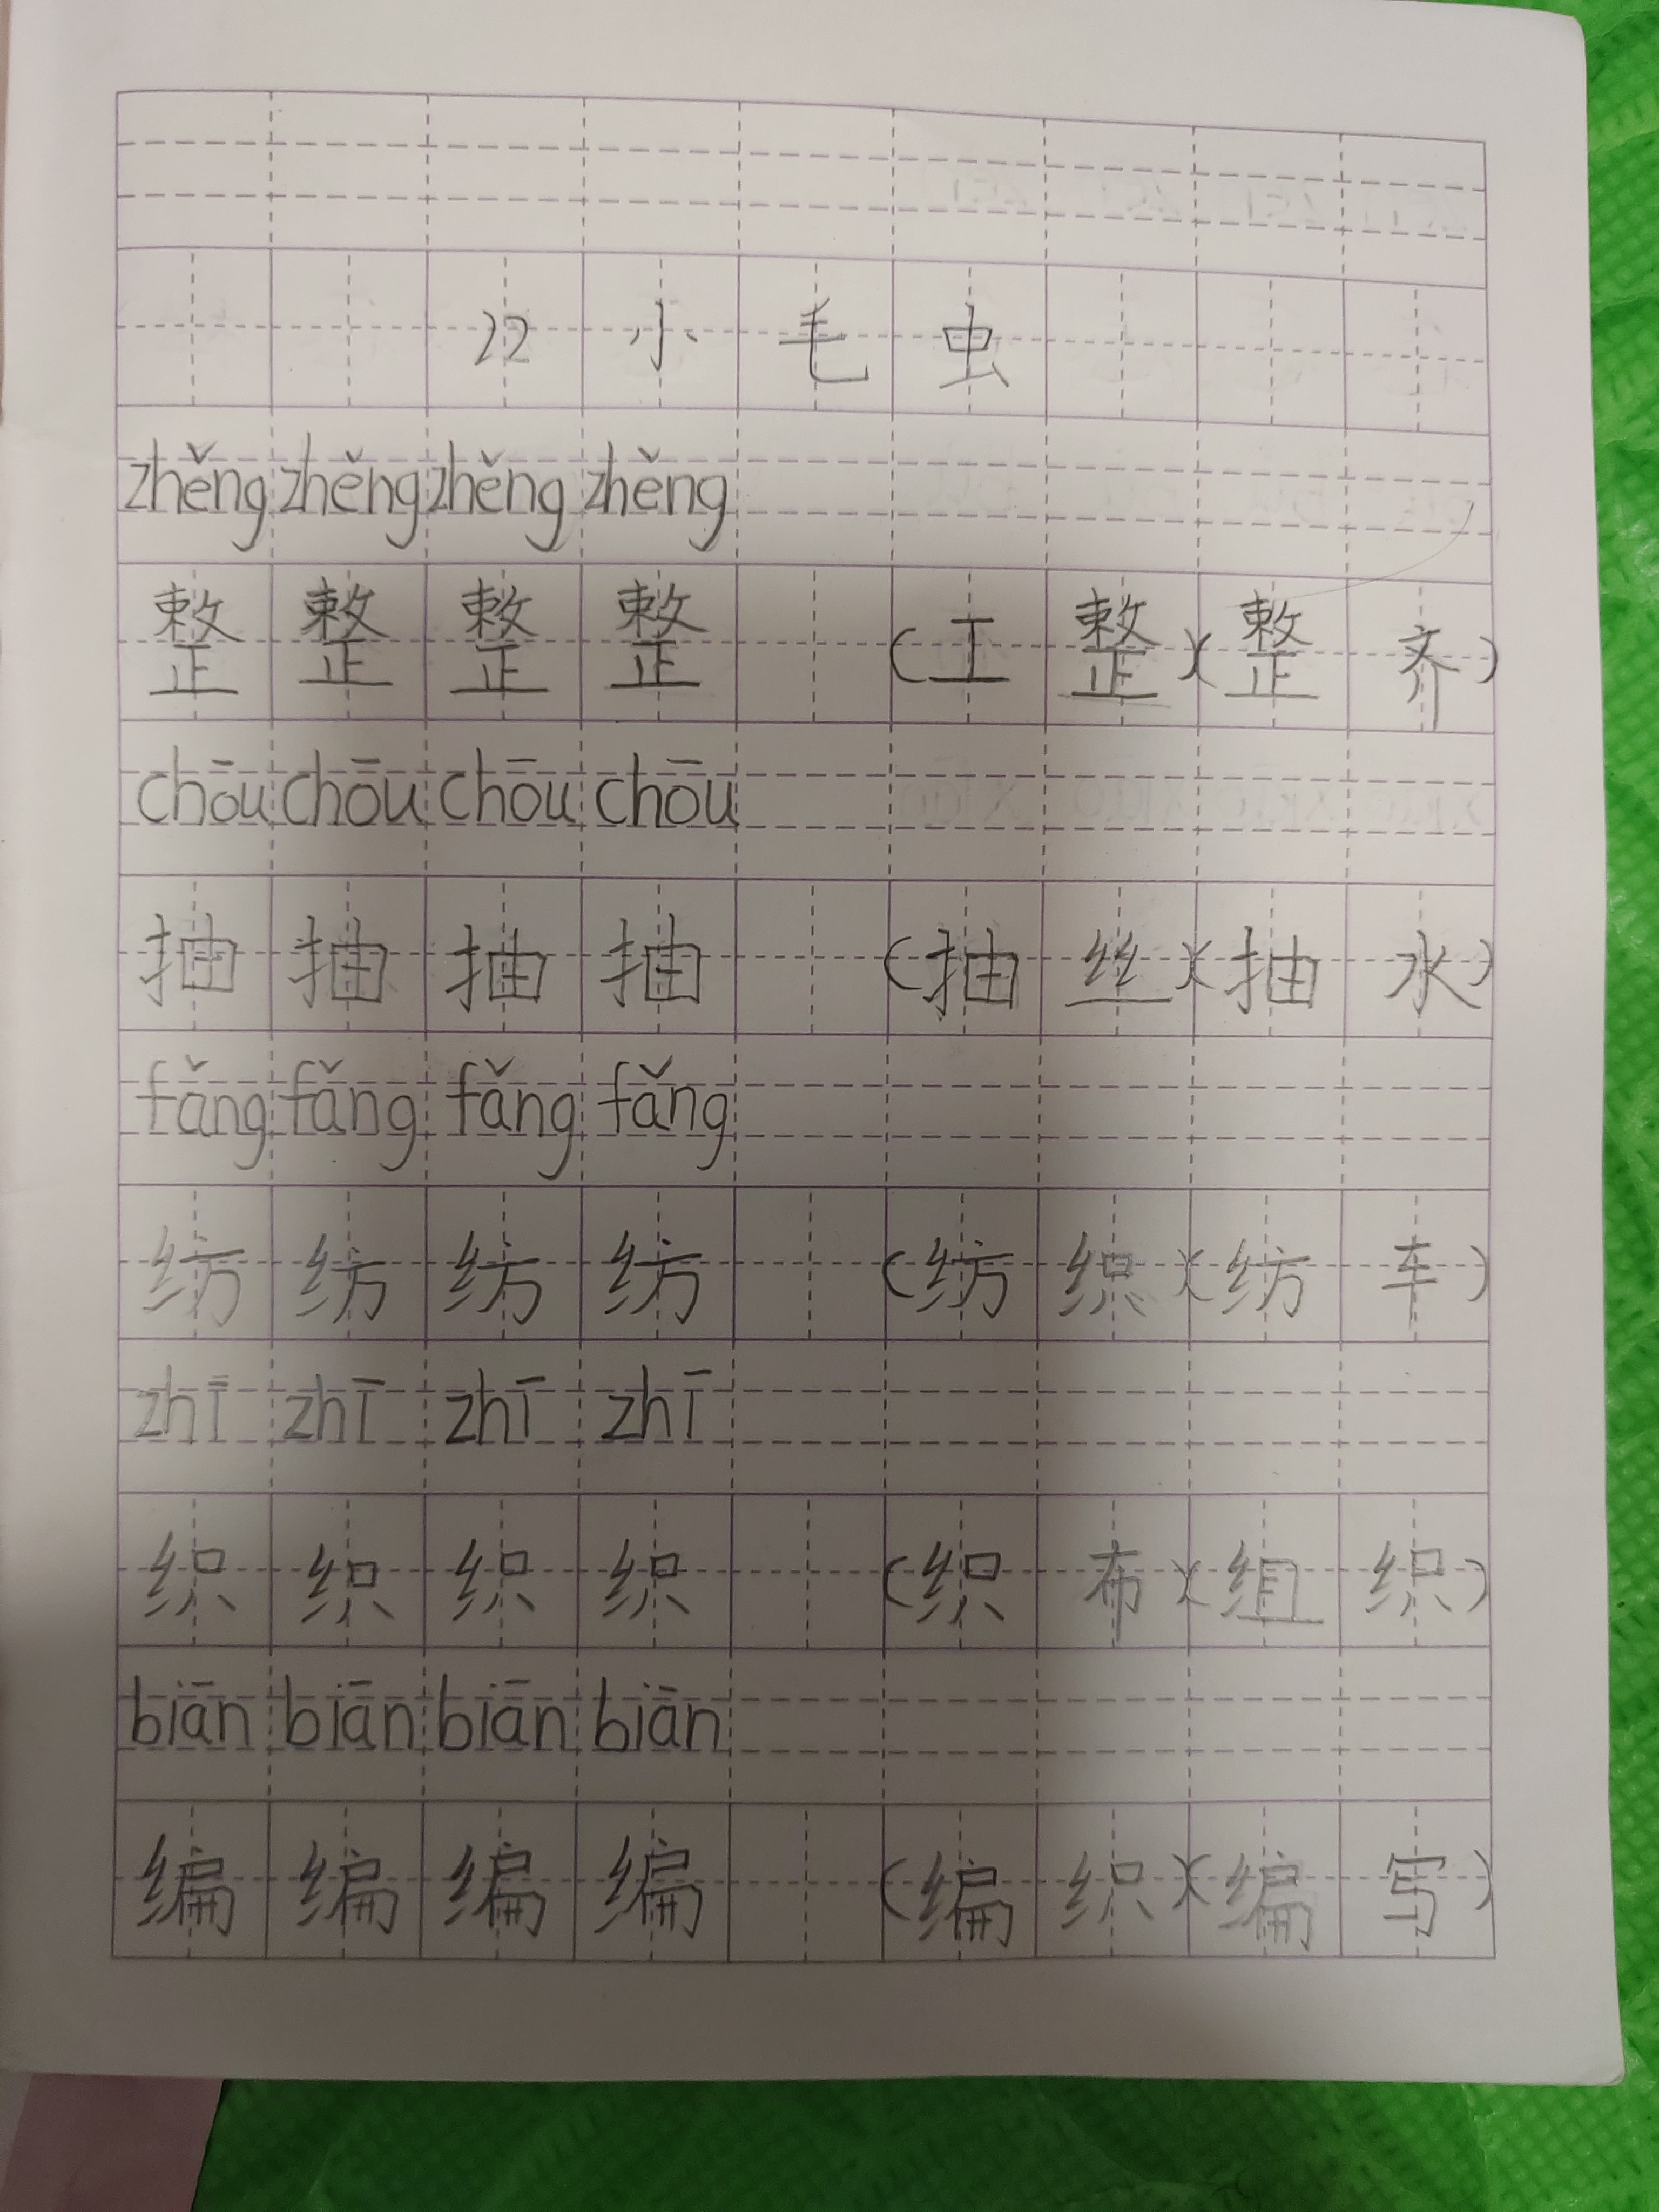 22 小毛虫
zhěng zhěng zhěng zhěng
整 整 整 整 (工整)(整齐)
chōu chōu chōu chōu
抽 抽 抽 抽 (抽丝)(抽水)
fǎng fǎng fǎng fǎng
纺 纺 纺 纺 (纺织)(纺车)
zhī zhī zhī zhī
织 织 织 织 (织布)(组织)
biān biān biān biān
编 编 编 编 (编织)(编写)